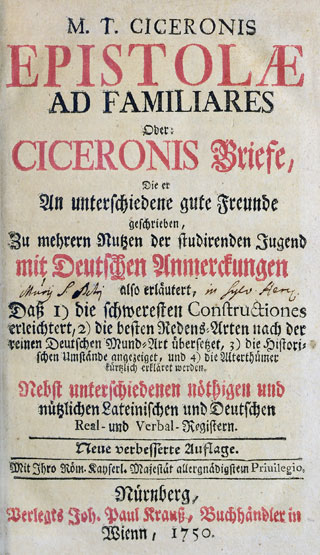 M. T. CICERONIS
EPISTOLÆ
AD FAMILIARES
Oder:
CICERONIS Briefe,
Die er
An unterschiedene gute Freunde
geschrieben,
Zu mehrern Nutzen der studirenden Jugend
mit Deutschen Anmerckungen
also erläutert,
Daß 1) die schweresten Constructiones
erleichtert, 2) die besten Redens-Arten nach der
reinen Deutschen Mund-Art übersetzet, 3) die Histori-
schen Umstände angezeiget, und 4) die Alterthümer
kürtzlich erkläret werden.
Nebst unterschiedenen nöthigen und
nützlichen Lateinischen und Deutschen
Real- und Verbal-Registern.
Neue verbesserte Auflage.
Mit Ihro Röm. Kayserl. Majestät allergnädigstem Priuilegio.
Nürnberg,
Verlegts Joh. Paul Krauß, Buchhändler in
Wienn, 1750.